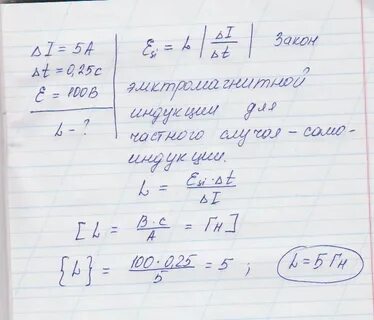 ΔI = 5A
Δt = 0,25c
Ɛ = 100В
L - ?
Ɛsi = L |ΔI/Δt| Закон
электромагнитной
индукции для
частного случая - само-
индукции.
L = Ɛsi · Δt / ΔI
[L = В · с / А = Гн]
{L} = 100 · 0,25 / 5 = 5 ; L = 5 Гн